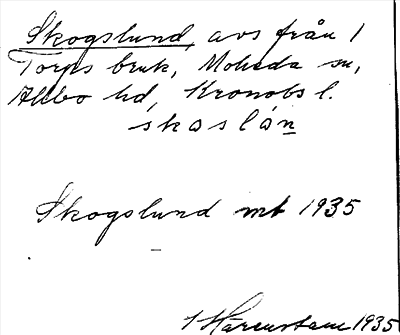 Skogslund, avs från 1
Torps bruk, Moheda sn,
Allbo hd, Kronobs l.
skoslón
Skogslund mt 1935
1 Härenstam 1935